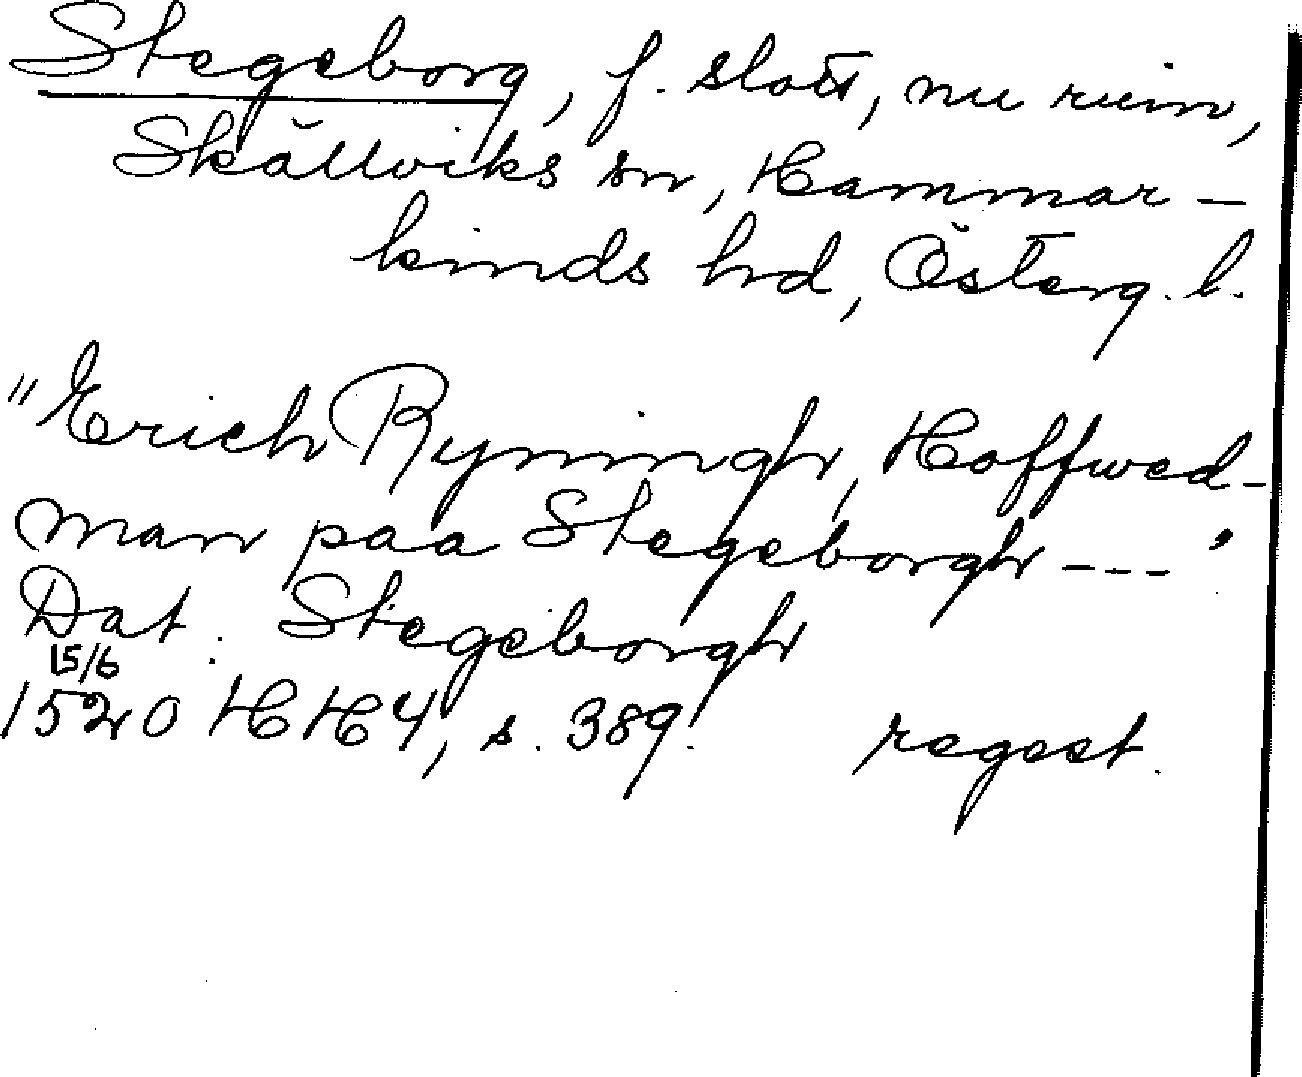 Stegeborg, f. slott, nu ruin,
Skällviks sn, Hammar-
kinds hd, Österg. l.
"Erich Ryningh, Hoffwed-
man paa Stegeborgh --- "
Dat. Stegeborgh
15/6
1520 HH 4, s. 389. regest.